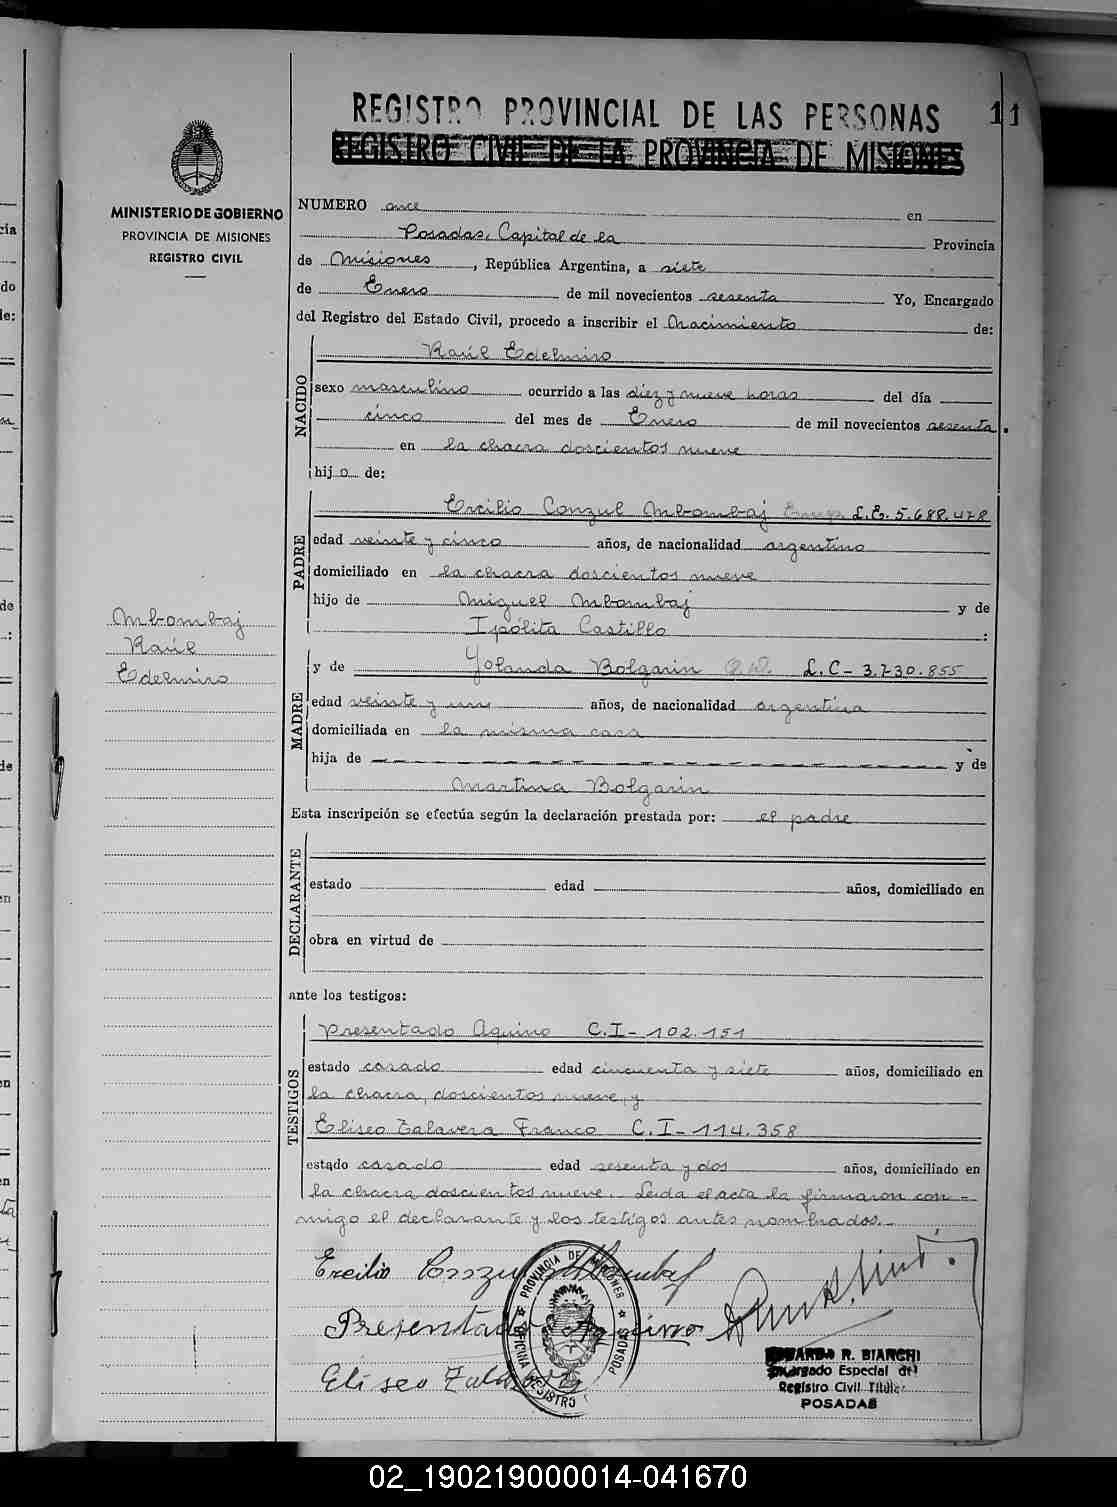 REGISTRO PROVINCIAL DE LAS PERSONAS 11
REGISTRO CIVIL DE LA PROVINCIA DE MISIONES
MINISTERIO DE GOBIERNO
PROVINCIA DE MISIONES
REGISTRO CIVIL
NUMERO once en
Posadas, Capital de la Provincia
de Misiones, República Argentina, a siete
de Enero de mil novecientos sesenta Yo, Encargado
del Registro del Estado Civil, procedo a inscribir el Nacimiento de:
NACIDO
Raúl Edelmiro
sexo masculino ocurrido a las diez y nueve horas del día
cinco del mes de Enero de mil novecientos sesenta
en la chacra doscientos nueve
hijo de:
PADRE
Ercilio Conzul Mbombaj L.E. 5.688.478
edad veinte y cinco años, de nacionalidad argentino
domiciliado en la chacra doscientos nueve
hijo de Miguel Mbombaj y de
Ipólita Castillo :
MADRE
y de Yolanda Bolgarin L.C-3.730.855
edad veinte y un años, de nacionalidad argentina
domiciliada en la misma casa
hija de y de
Martina Bolgarin
Mbombaj
Raúl
Edelmiro
Esta inscripción se efectúa según la declaración prestada por: el padre
DECLARANTE
estado edad años, domiciliado en
obra en virtud de
ante los testigos:
TESTIGOS
Presentado Aquino C.I-102.151
estado casado edad cincuenta y siete años, domiciliado en
la chacra doscientos nueve, y
Eliseo Talavera Franco C.I-114.358
estado casado edad sesenta y dos años, domiciliado en
la chacra doscientos nueve. Leida el acta la firmaron con-
migo el declarante y los testigos antes nombrados.-
Ercilio Conzul Mbombaj
Presentado Aquino
Eliseo Talavera
PROVINCIA DE MISIONES
OFICINA REGISTRO POSADAS
EDUARDO R. BIANCHI
Encargado Especial del
Registro Civil Titular
POSADAS
02_190219000014-041670